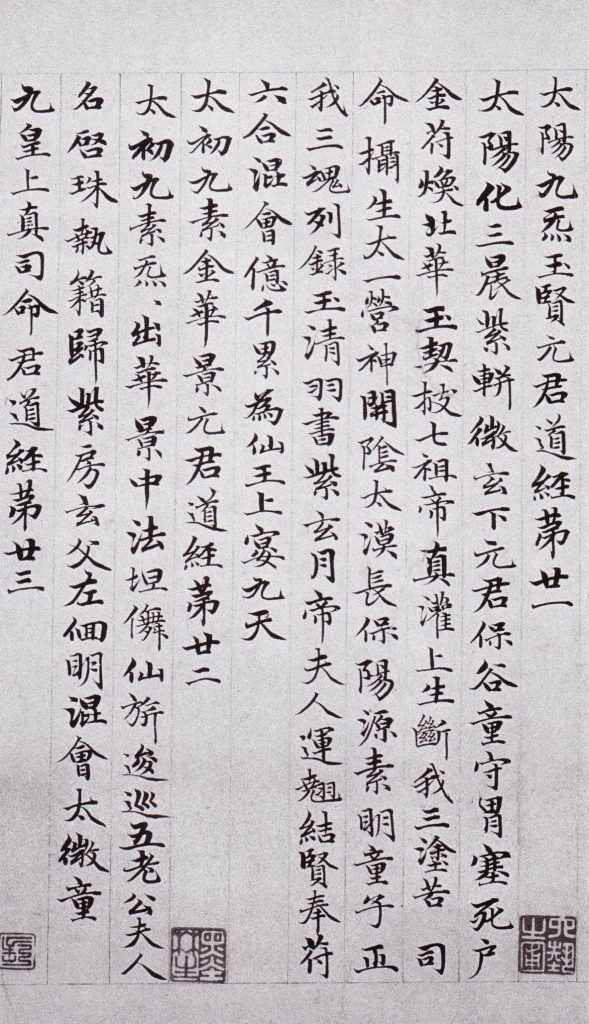 太陽九炁玉賢元君道經第廿一
太陽化三晨紫軿微玄下元君保谷童守胃塞死户
金苻煥北華玉契拔七祖帝真灌上生斷我三塗苦司
命攝生太一營神開陰太漠長保陽源素明童子正
我三魂列錄玉清羽書紫玄月帝夫人運翹結賢奉苻
六合混會億千累為仙王上宴九天
太初九素金華景元君道經第廿二
太初九素炁、出華景中法坦儛仙旂逡巡五老公夫人
名啓珠執籍歸紫房玄父左佪明混會太微童
九皇上真司命君道經第廿三